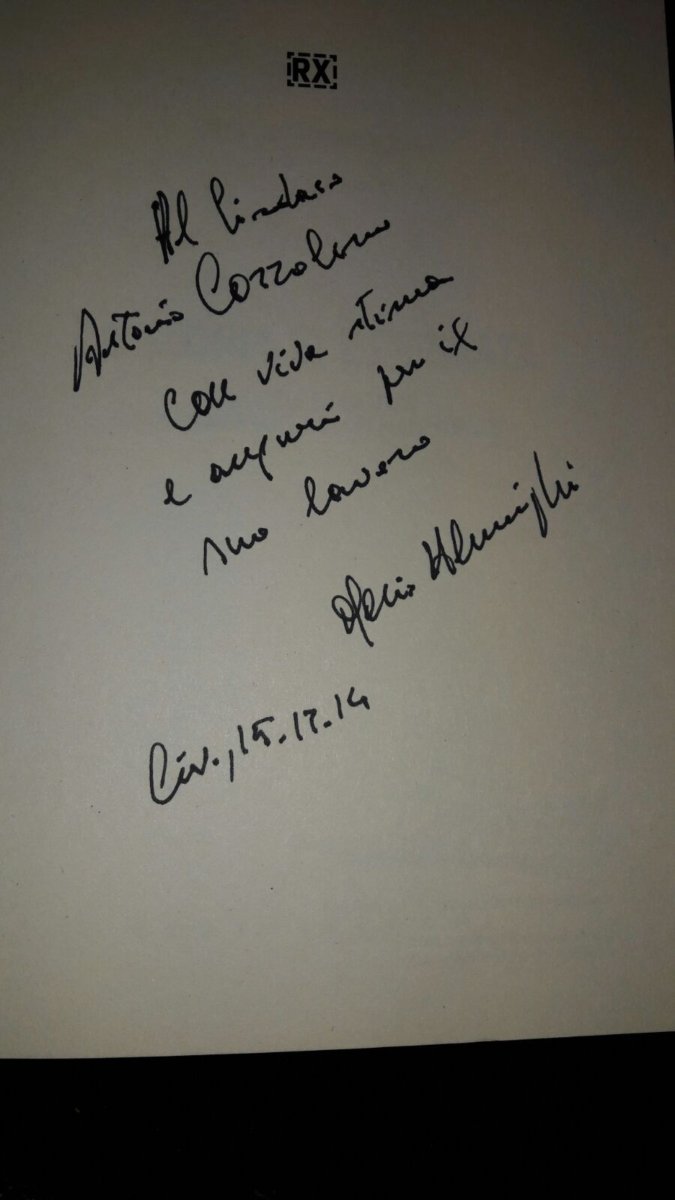 RX
Al Sindaco
Antonio Cozzolino
con viva stima
e auguri per il
suo lavoro
Civ., 15.12.14